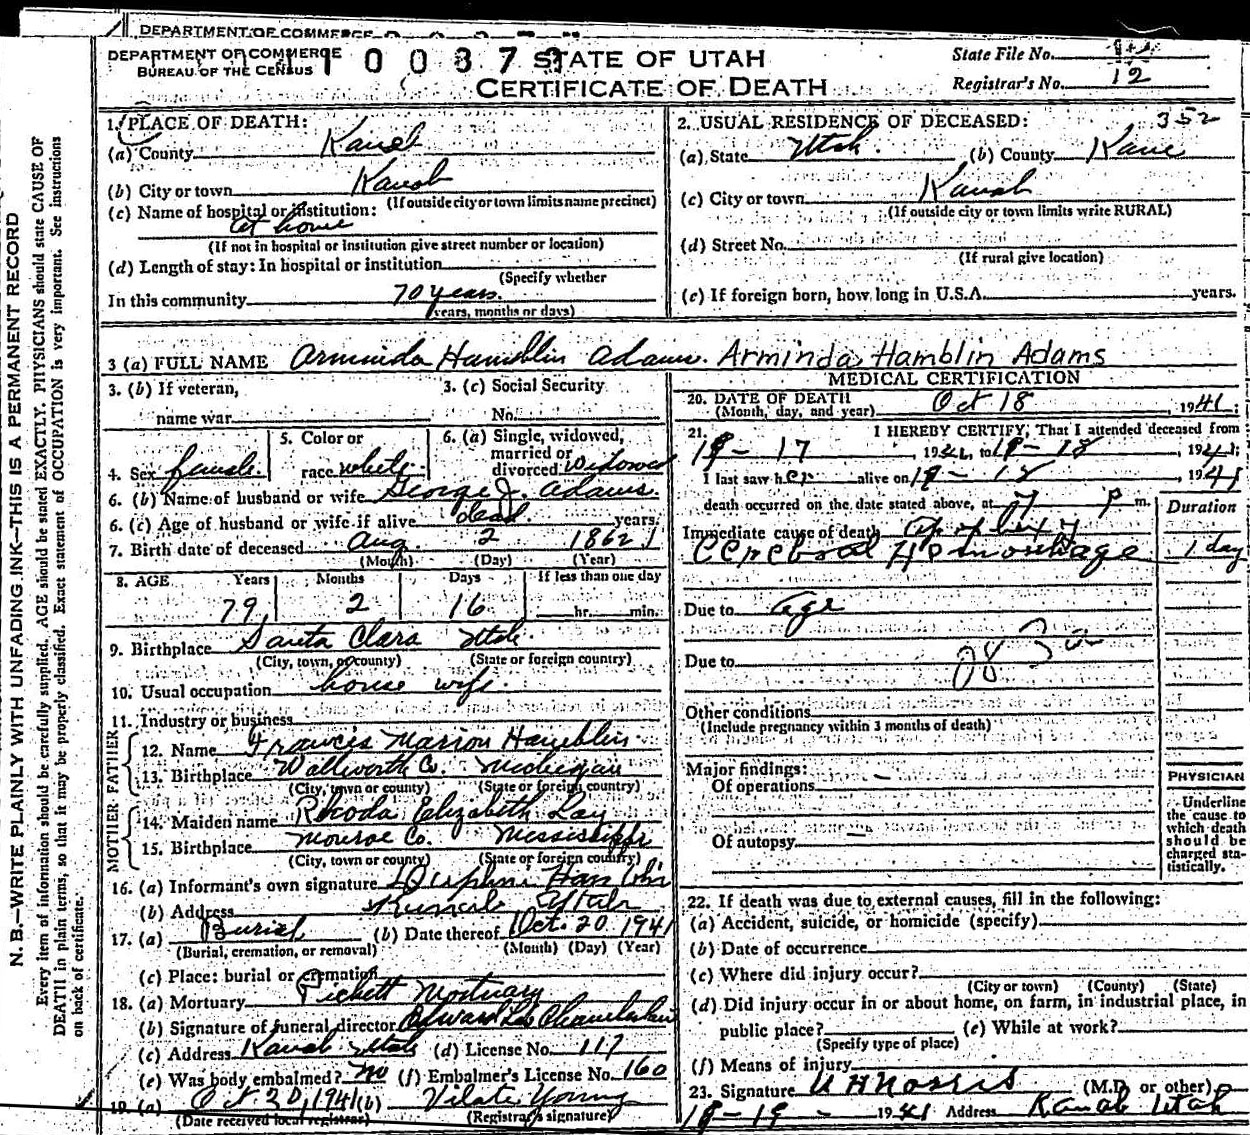 DEPARTMENT OF COMMERCE
DEPARTMENT OF COMMERCE
BUREAU OF THE CENSUS
STATE OF UTAH
CERTIFICATE OF DEATH
State File No.
Registrar's No. 12
N. B.—WRITE PLAINLY WITH UNFADING INK—THIS IS A PERMANENT RECORD
Every item of information should be carefully supplied. AGE should be stated EXACTLY. PHYSICIANS should state CAUSE OF
DEATH in plain terms, so that it may be properly classified. Exact statement of OCCUPATION is very important. See instructions
on back of certificate.
1. PLACE OF DEATH:
(a) County
(b) City or town Kanab
(If outside city or town limits name precinct)
(c) Name of hospital or institution:
at home
(If not in hospital or institution give street number or location)
(d) Length of stay: In hospital or institution
(Specify whether
In this community 70 years.
years, months or days)
2. USUAL RESIDENCE OF DECEASED: 352
(a) State Utah. (b) County Kane
(c) City or town Kanab
(If outside city or town limits write RURAL)
(d) Street No.
(If rural give location)
(e) If foreign born, how long in U.S.A. years.
3 (a) FULL NAME Arminda Hamblin Adams. Arminda Hamblin Adams
3. (b) If veteran,
name war
3. (c) Social Security
No.
4. Sex female. 5. Color or
race white.
6. (a) Single, widowed,
married or
divorced widowed
6. (b) Name of husband or wife George J. Adams.
6. (c) Age of husband or wife if alive dead. years.
7. Birth date of deceased Aug 2 1862
(Month) (Day) (Year)
8. AGE Years Months Days If less than one day
79 2 16 hr. min.
9. Birthplace Santa Clara Utah.
(City, town, or county) (State or foreign country)
10. Usual occupation house wife.
11. Industry or business
FATHER
12. Name Francis Marion Hamblin.
13. Birthplace Wallworth Co. Michigan
(City, town or county) (State or foreign country)
MOTHER
14. Maiden name Rhoda Elizabeth Lay
15. Birthplace Monroe Co. Mississippi
(City, town or county) (State or foreign country)
16. (a) Informant's own signature
(b) Address Utah
17. (a) Burial (b) Date thereof Oct. 20 1941
(Burial, cremation, or removal) (Month) (Day) (Year)
(c) Place: burial or cremation
18. (a) Mortuary Pickett Mortuary
(b) Signature of funeral director Edward Leo Chamberlain
(c) Address Kanab Utah (d) License No. 117
(e) Was body embalmed? no (f) Embalmer's License No. 160
19. (a) Oct 20, 1941 (b) Vilate Young
(Date received local registrar) (Registrar's signature)
MEDICAL CERTIFICATION
20. DATE OF DEATH
(Month, day, and year) Oct 18, 1941;
21. I HEREBY CERTIFY, That I attended deceased from
17, 1941, to 18, 1941;
I last saw her alive on 18, 1941
death occurred on the date stated above, at 7 P m.
Duration
Immediate cause of death Apoplexy
Cerebral Hemorrhage 1 day
Due to age
Due to
Other conditions
(Include pregnancy within 3 months of death)
Major findings:
Of operations
Of autopsy
PHYSICIAN
Underline
the cause to
which death
should be
charged sta-
tistically.
22. If death was due to external causes, fill in the following:
(a) Accident, suicide, or homicide (specify)
(b) Date of occurrence
(c) Where did injury occur?
(City or town) (County) (State)
(d) Did injury occur in or about home, on farm, in industrial place, in
public place? (e) While at work?
(Specify type of place)
(f) Means of injury
23. Signature Norris (M.D. or other)
19 - 1941 Address Kanab Utah